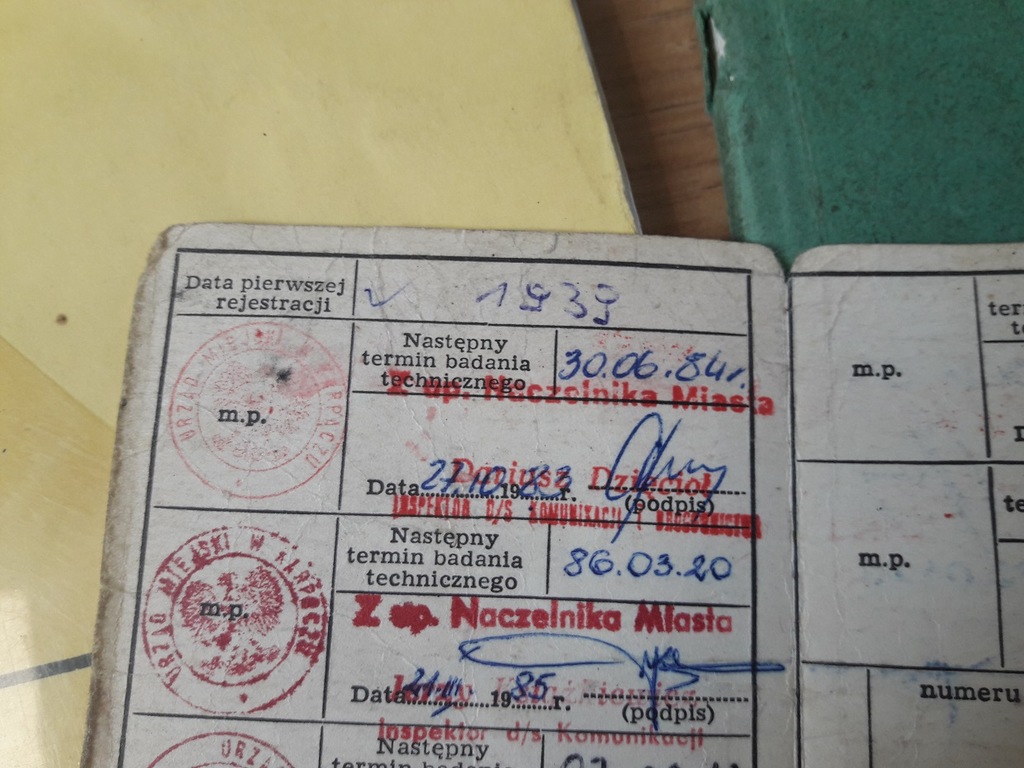 Data pierwszej
rejestracji
1939
URZĄD MIEJSKI W KARPACZU
m.p.
Następny
termin badania
technicznego
30.06.84r.
Z up. Naczelnika Miasta
Dariusz Dzięcioł
Data 27.10.1983r.
(podpis)
INSPEKTOR D/S KOMUNIKACJI I
URZĄD MIEJSKI W KARPACZU
m.p.
Następny
termin badania
technicznego
86.03.20
Z up. Naczelnika Miasta
Data 21.III.1985r.
(podpis)
Inspektor d/s Komunikacji
URZĄ
Następny
m.p.
ter
m.p.
te
numeru